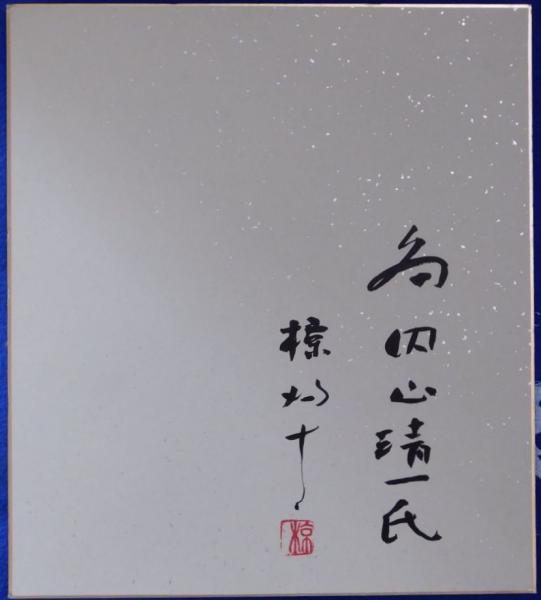 為内山靖一氏
椋鳩十
椋